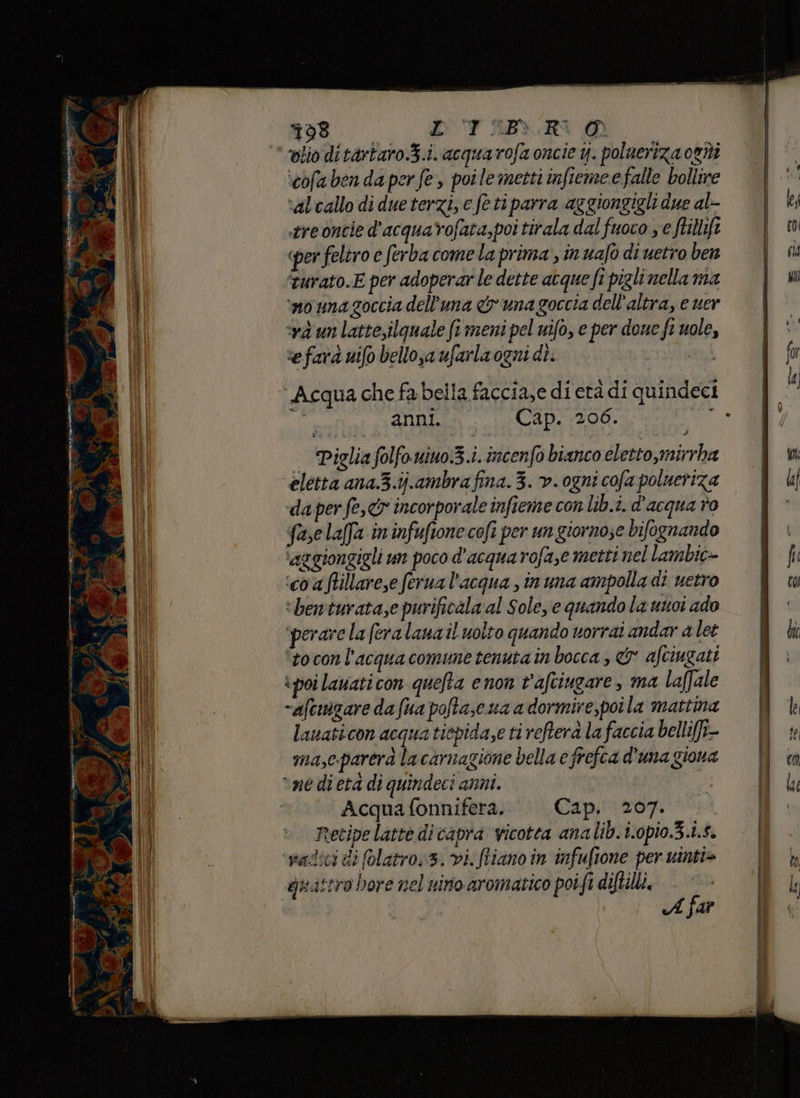 198 L I B R O
olio di tartaro.℥.i. acqua rosa oncie ij. polueriza ogni
cosa ben da per se, poi le metti insieme e falle bollire
al callo di due terzi, e se ti parra aggiongigli due al-
tre oncie d'acqua rosata,poi tirala dal fuoco, e stillisi
per feltro e serba come la prima, in uaso di uetro ben
turato.E per adoperar le dette acque si pigli nella ma
no una goccia dell'una & una goccia dell'altra, e uer
rà un latte,ilquale si meni pel uiso, e per doue si uole,
e farà uiso bello,a usarla ogni dì.
Acqua che fa bella faccia,e di età di quindeci
anni. Cap. 206.
Piglia solfo uiuo.℥.i. incenso bianco eletto,mirrha
eletta ana.℥.ij.ambra fina.℥. v. ogni cosa polueriza
da per se,& incorporale insieme con lib.i. d'acqua ro
sa,e lassa in infusione cosi per un giorno,e bisognando
aggiongigli un poco d'acqua rosa,e metti nel lambic-
co a stillare,e serua l'acqua, in una ampolla di uetro
ben turata,e purificala al Sole, e quando la uuoi ado
perare la sera laua il uolto quando uorrai andar a let
to con l'acqua comune tenuta in bocca, & asciugati
poi lauati con questa e non t'asciugare, ma lassale
asciugare da sua posta,e ua a dormire,poi la mattina
lauati con acqua tiepida,e ti resterà la faccia bellissi-
ma,e parerà la carnagione bella e fresca d'una gioua
ne di età di quindeci anni.
Acqua sonnifera. Cap. 207.
Recipe latte di capra ricotta ana lib.i.opio.℥.i.s.
radici di solatro.℥. vi. stiano in infusione per uinti-
quattro hore nel uino aromatico poi si distilli.
A far